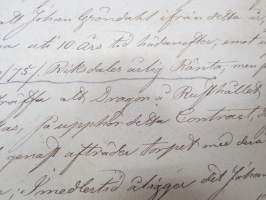 att Johan Gröndahl ifrån detta år
uti 10 års tid hädanefter, emot
/75/ Riksdaler årlig Ränta, men
träffa att Dragon å Rusthållet
så upphör detta Contract, d
genast afträder torpet med dera
Imedlertid åligger det Johan